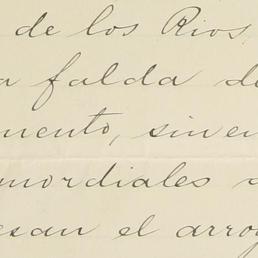 de los Rios
a falda de
mento, sin en
mordiales
esan el arroy